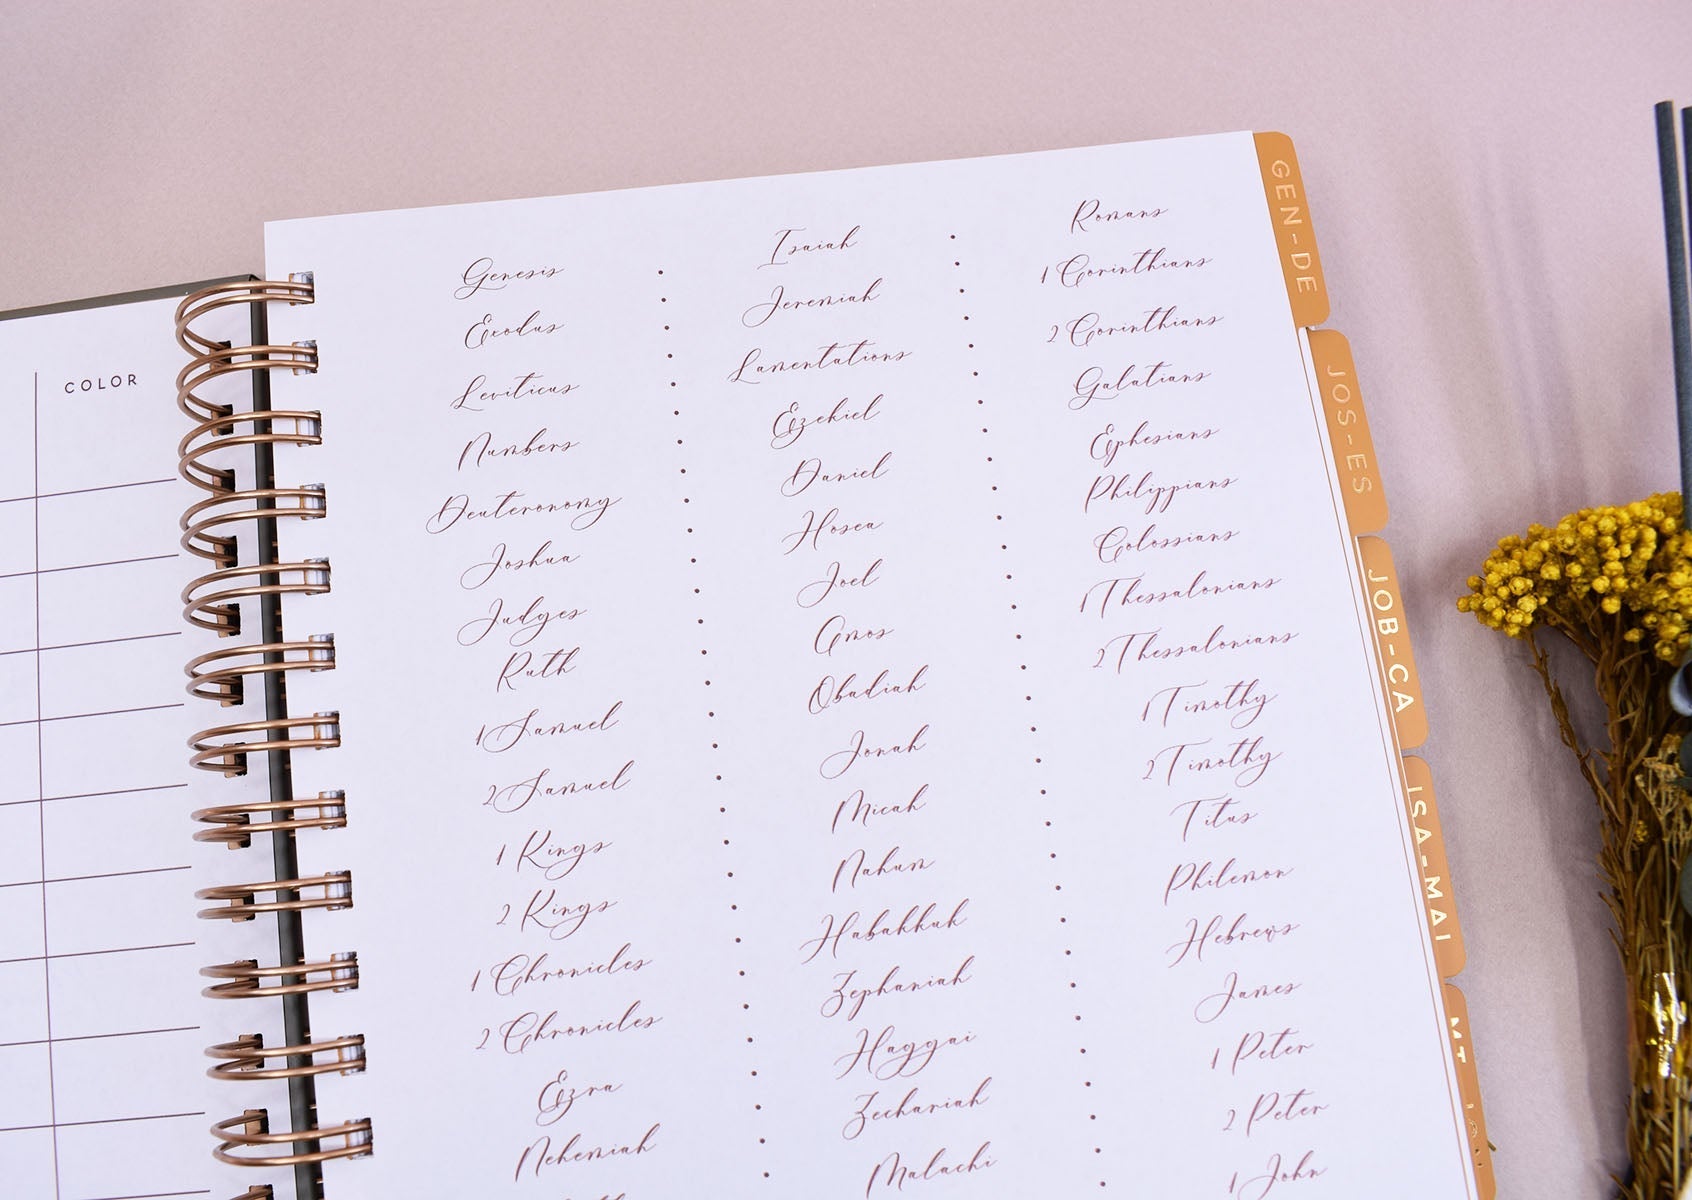 COLOR
Genesis
Exodus
Leviticus
Numbers
Deuteronomy
Joshua
Judges
Ruth
1 Samuel
2 Samuel
1 Kings
2 Kings
1 Chronicles
2 Chronicles
Ezra
Nehemiah
Isaiah
Jeremiah
Lamentations
Ezekiel
Daniel
Hosea
Joel
Amos
Obadiah
Jonah
Micah
Nahum
Habakkuk
Zephaniah
Haggai
Zechariah
Malachi
Romans
1 Corinthians
2 Corinthians
Galatians
Ephesians
Philippians
Colossians
1 Thessalonians
2 Thessalonians
1 Timothy
2 Timothy
Titus
Philemon
Hebrews
James
1 Peter
2 Peter
1 John
GEN-DE
JOS-ES
JOB-CA
ISA-MAL
MT